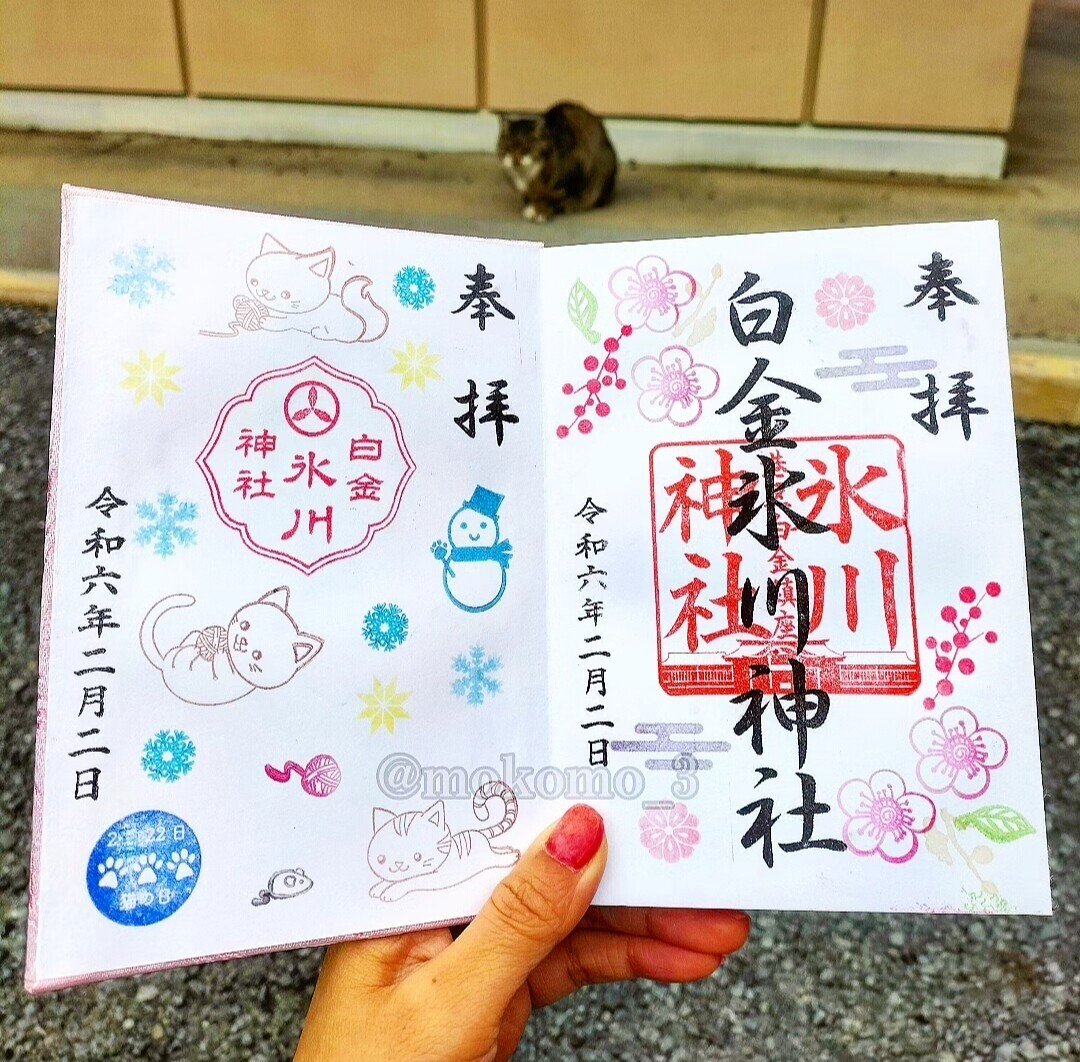 奉拝
白金
氷川
神社
令和六年二月二日
2月22日
猫の日
奉拝
白金氷川神社
氷川
神社
白金鎮座
令和六年二月二日
@mokomo_3